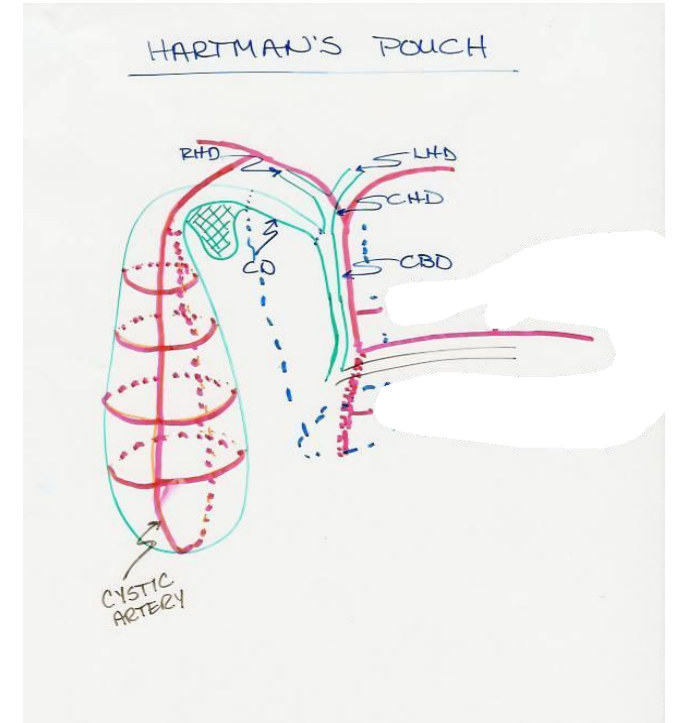 HARTMAN'S POUCH
RHD
LHD
CHD
CD
CBD
CYSTIC
ARTERY